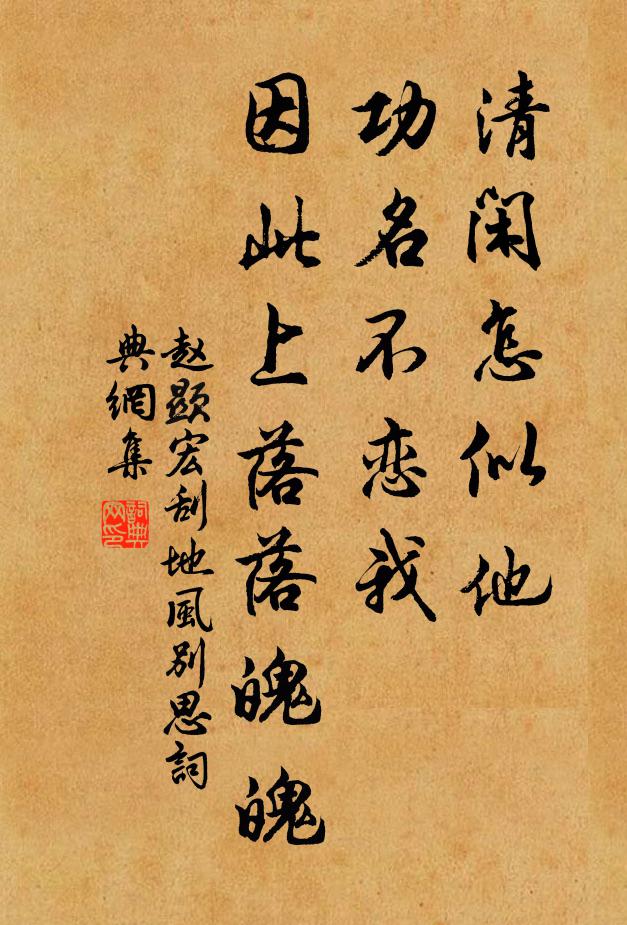 清閑怎似他
功名不恋我
因此上落落魄魄
赵顯宏刮地風别思詞
典網集
詞典
网印